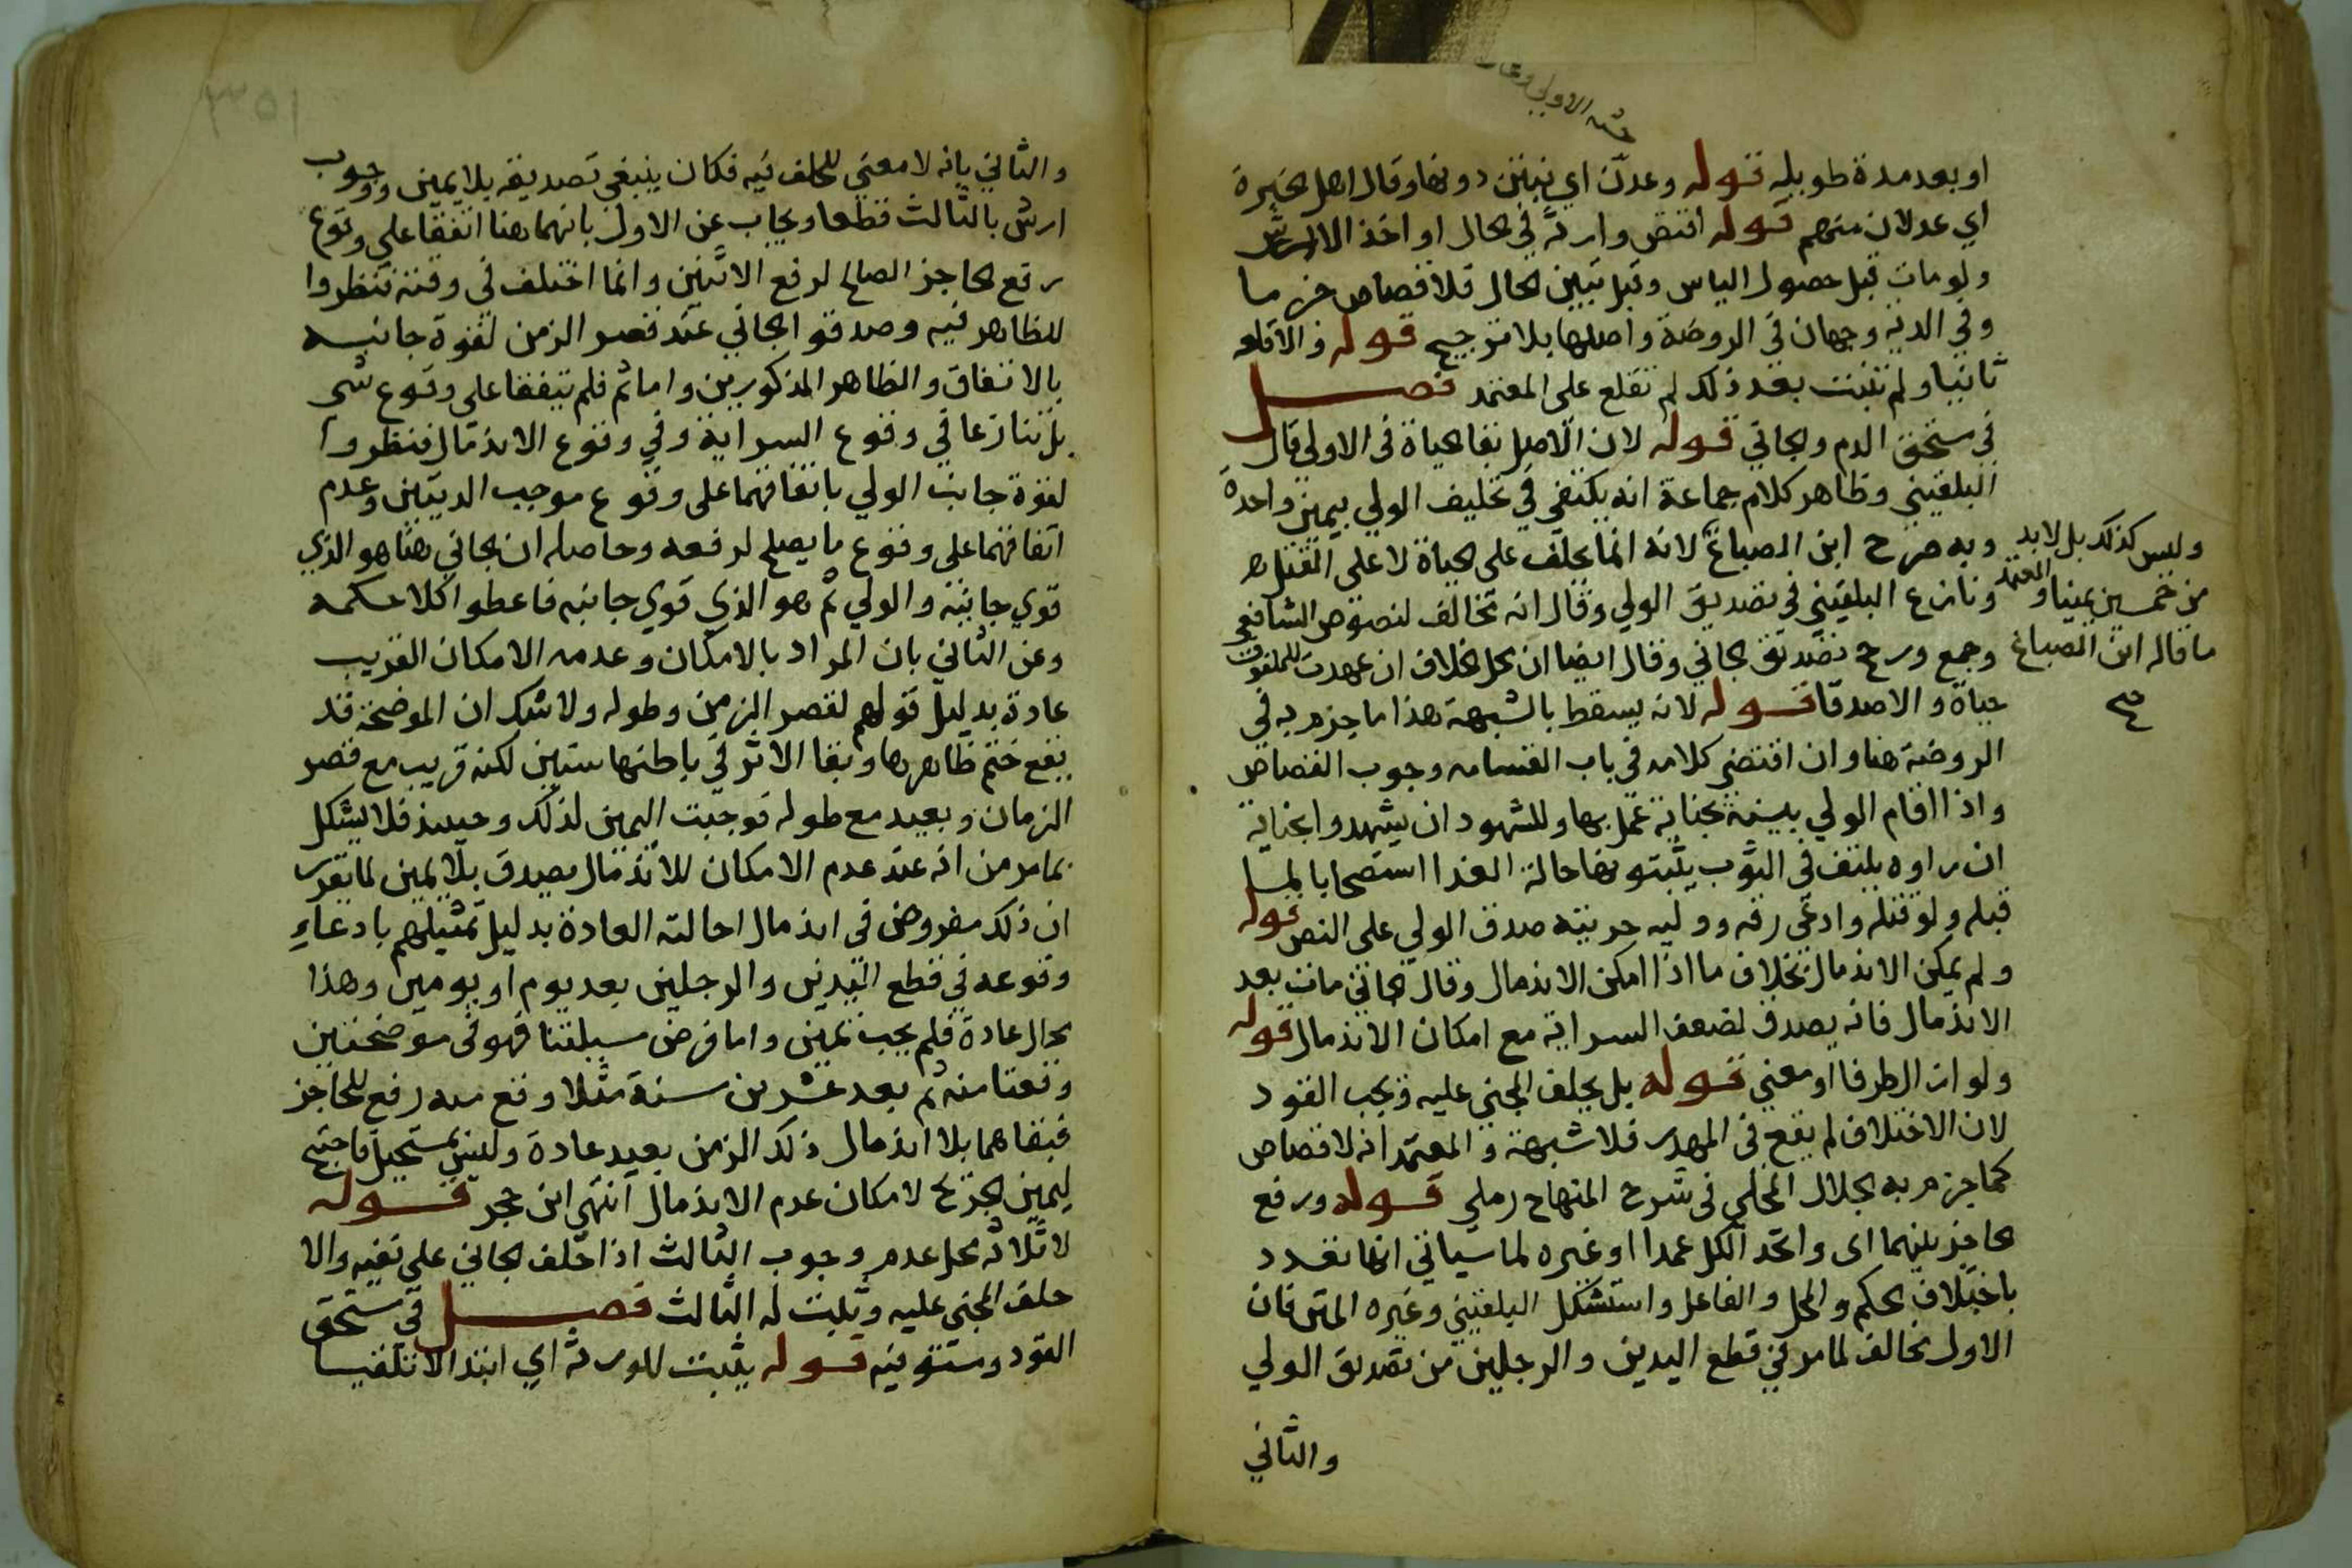 او بعد مدة طويلة قوله وعدن اي نبتن دونها وقال اهل الخبرة
اي عدلان منهم قوله اقتص وارثه في الحال او اخذ الارش
ولو مات قبل حصول الياس وقبل تبين الحال فلا قصاص جزما
وفي الدية وجهان في الروضة واصلها بلا ترجيح قوله
ثانيا ولم تنبت بعد ذلك لم تقلع على المعتمد فصل
في مستحق الدم والجاني قوله لان الاصل بقا الحياة في الاولى قال
البلقيني وظاهر كلام جماعة انه يكتفى في تحليف الولي بيمين واحدة
وبه صرح ابن الصباغ لانه انما يحلف على الحياة لا على القتل
ونازع البلقيني في تصديق الولي وقال انه مخالف لنصوص الشافعي
وجمع ورجح تصديق الجاني وقال ايضا ان محل الخلاف ان عهدت للملفوف
حياة والا صدقا قوله لانه يسقط بالشبهة هذا ما جزم به في
الروضة هنا وان اقتضى كلامه في باب القسامه وجوب القصاص
واذا اقام الولي بينة بجناية عمل بها وللشهود ان يشهدوا بجناية
ان راوه يلتف في الثوب استصحابا لما
قبله ولو قتله وادعى رقه ووليه حريته صدق الولي على النص قوله
ولم يمكن الاندمال بخلاف ما اذا امكن الاندمال وقال الجاني مات بعد
الاندمال فانه يصدق لضعف السراية مع امكان الاندمال قوله
ولو ازال طرفا او معنى قوله بل يحلف المجني عليه ويجب القود
لان الاختلاف لم يقع في المهدر فلا شبهة والمعتمد انه لا قصاص
كما جزم به الجلال المحلي في شرح المنهاج رملي قوله ورفع
حاجز بينهما اى واتحد الكل عمدا او غيره لما سياتي انها تعدد
باختلاف الحكم والمحل والفاعل واستشكل البلقيني وغيره المتن فان
الاول مخالف لما مر في قطع اليدين والرجلين من تصديق الولي
والثاني
وليس كذلك بل لابد
من خمسين يمينا والمعتمد
ما قاله ابن الصباغ
صح
٣٥١
والثاني بانه لا معنى للحلف فيه فكان ينبغي تصديقه بلا يمين ووجوب
ارش بالثالث قطعا ويجاب عن الاول بانهما هنا اتفقا على وقوع
رفع الحاجز الصالح لرفع الاثنين وانما اختلف في وقته فنظروا
للظاهر فيه وصدقوا الجاني عند قصر الزمن لقوة جانبه
بالاتفاق والظاهر المذكورين واما ثم فلم يتفقا على وقوع شى
بل تنازعا في وقوع السراية وفي وقوع الاندمال فنظروا
لقوة جانب الولي باتفاقهما على وقوع موجب الديتين وعدم
اتفاقهما على وقوع ما يصلح لرفعه وحاصله ان الجاني هنا هو الذي
قوي جانبه والولي ثم هو الذي قوي جانبه فاعطوا كلا حكمه
وعن الثاني بان المراد بالامكان وعدمه الامكان القريب
عادة بدليل قولهم لقصر الزمن وطوله ولا شك ان الموضحة قد
يقع ختم ظاهرها وبقا الاثر في باطنها سنين لكنه قريب مع قصر
الزمان وبعيد مع طوله فوجبت اليمين لذلك وحينئذ فلا يشكل
بما مر من انه عند عدم الامكان للاندمال يصدق بلا يمين لما تقرر
ان ذلك مفروض في اندمال احالته العادة بدليل تمثيلهم بادعاء
وقوعه في قطع اليدين والرجلين بعد يوم او يومين وهذا
محال عادة فلم يجب يمين واما فرض مسيلتنا فهو في موضحتين
وقعتا منه ثم بعد عشرين سنة مثلا وقع منه رفع للحاجز
فبقاهما بلا اندمال ذلك الزمن بعيد عادة وليس بمستحيل فاحتيج
ليمين الجريح لامكان عدم الاندمال انتهى ابن حجر قوله
لا ثلاثة محل عدم وجوب الثالث اذا حلف الجاني على نفيه والا
حلف المجني عليه وثبت له الثالث فصل في مستحق
القود ومستوفيه قوله يثبت للورثة اي ابتدا لا تلقيا